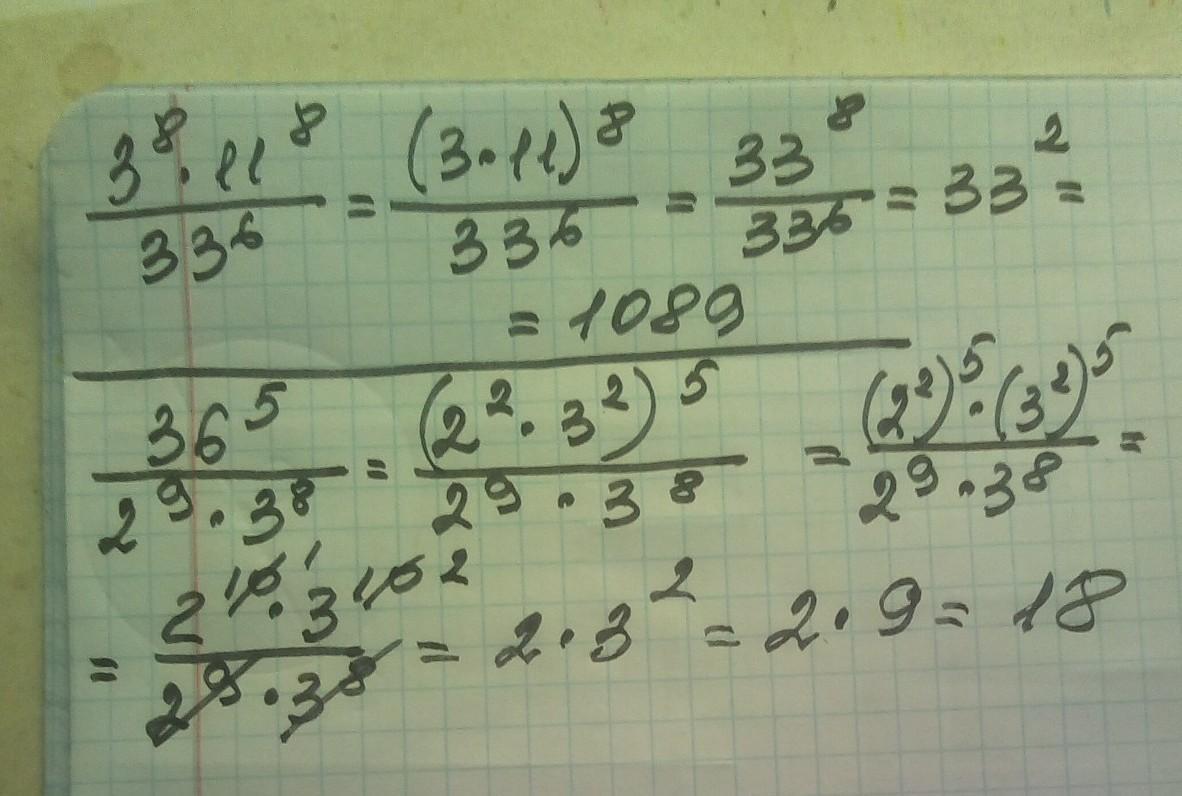 3⁸·11⁸/33⁶ = (3·11)⁸/33⁶ = 33⁸/33⁶ = 33² =
= 1089
36⁵/2⁹·3⁸ = (2²·3²)⁵/2⁹·3⁸ = (2²)⁵·(3²)⁵/2⁹·3⁸ =
= 2¹⁰ ¹·3¹⁰ ²/2⁹·3⁸ = 2·3² = 2·9 = 18